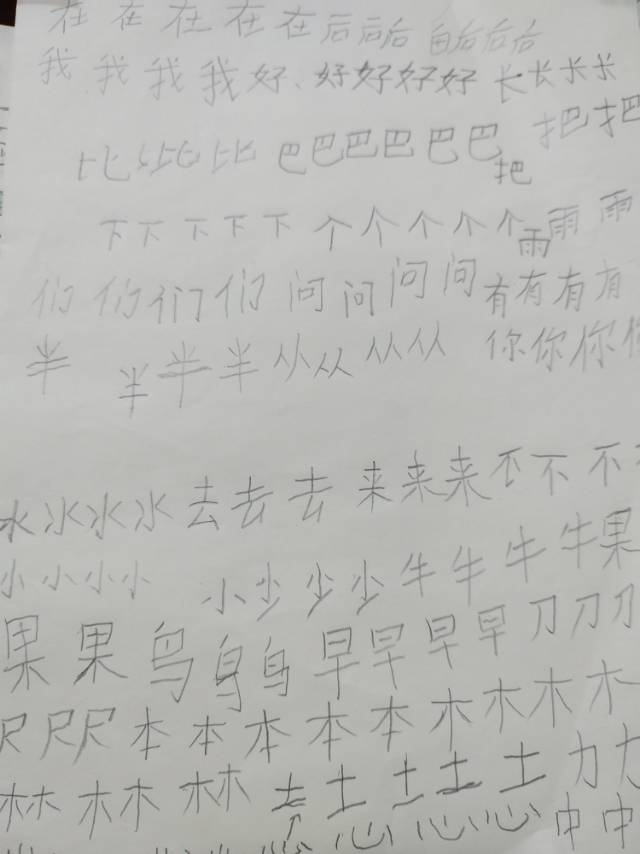 在 在 在 在 在 后 后 后 自 后 后 后
我 我 我 我 好、好 好 好 好 长 长 长 长
比 比 比 比 巴 巴 巴 巴 巴 巴 把 把 把
下 下 下 下 下 个 个 个 个 个 雨 雨 雨
们 们 们 们 问 问 问 问 有 有 有 有
半 半 半 半 从 从 从 从 你 你 你
水 水 水 水 去 去 去 来 来 来 不 不 不
小 小 小 小 小 少 少 少 牛 牛 牛 牛 果
果 果 鸟 鸟 早 早 早 早 刀 刀 刀
尺 尺 尺 本 本 本 本 本 木 木 木 木
林 林 林 土 土 土 土 土 力 力
心 心 心 中 中